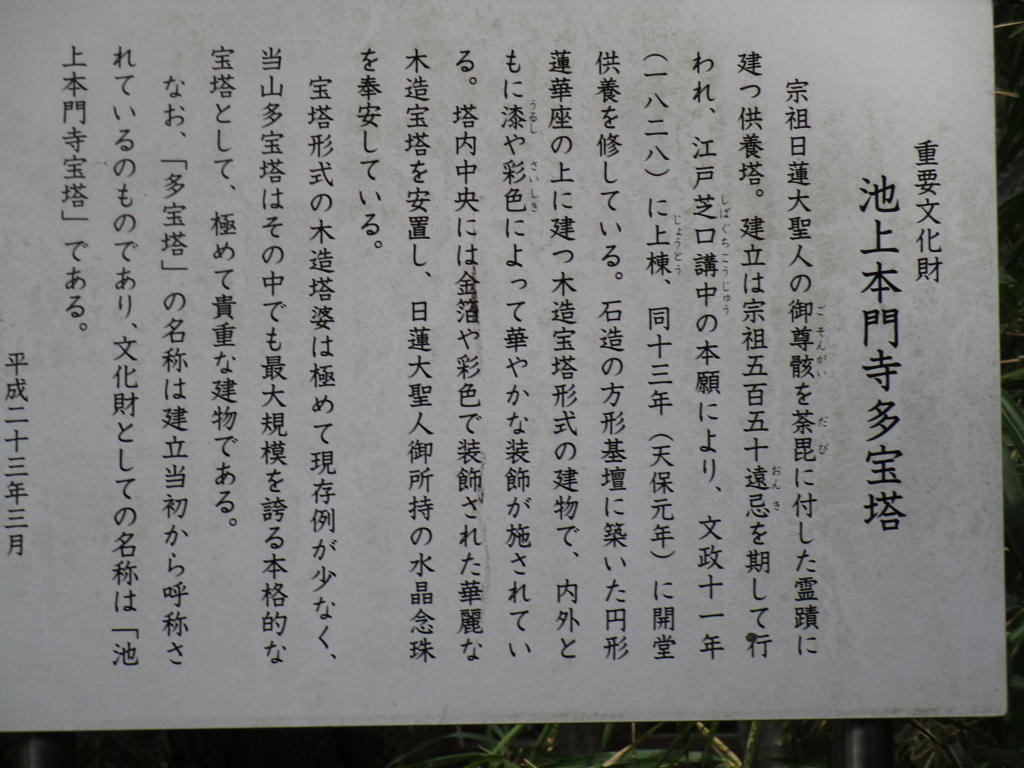 重要文化財
池上本門寺多宝塔
宗祖日蓮大聖人の御尊骸を荼毘に付した霊蹟に
建つ供養塔。建立は宗祖五百五十遠忌を期して行
われ、江戸芝口講中の本願により、文政十一年
（一八二八）に上棟、同十三年（天保元年）に開堂
供養を修している。石造の方形基壇に築いた円形
蓮華座の上に建つ木造宝塔形式の建物で、内外と
もに漆や彩色によって華やかな装飾が施されてい
る。塔内中央には金箔や彩色で装飾された華麗な
木造宝塔を安置し、日蓮大聖人御所持の水晶念珠
を奉安している。
宝塔形式の木造塔婆は極めて現存例が少なく、
当山多宝塔はその中でも最大規模を誇る本格的な
宝塔として、極めて貴重な建物である。
なお、「多宝塔」の名称は建立当初から呼称さ
れているのものであり、文化財としての名称は「池
上本門寺宝塔」である。
平成二十三年三月